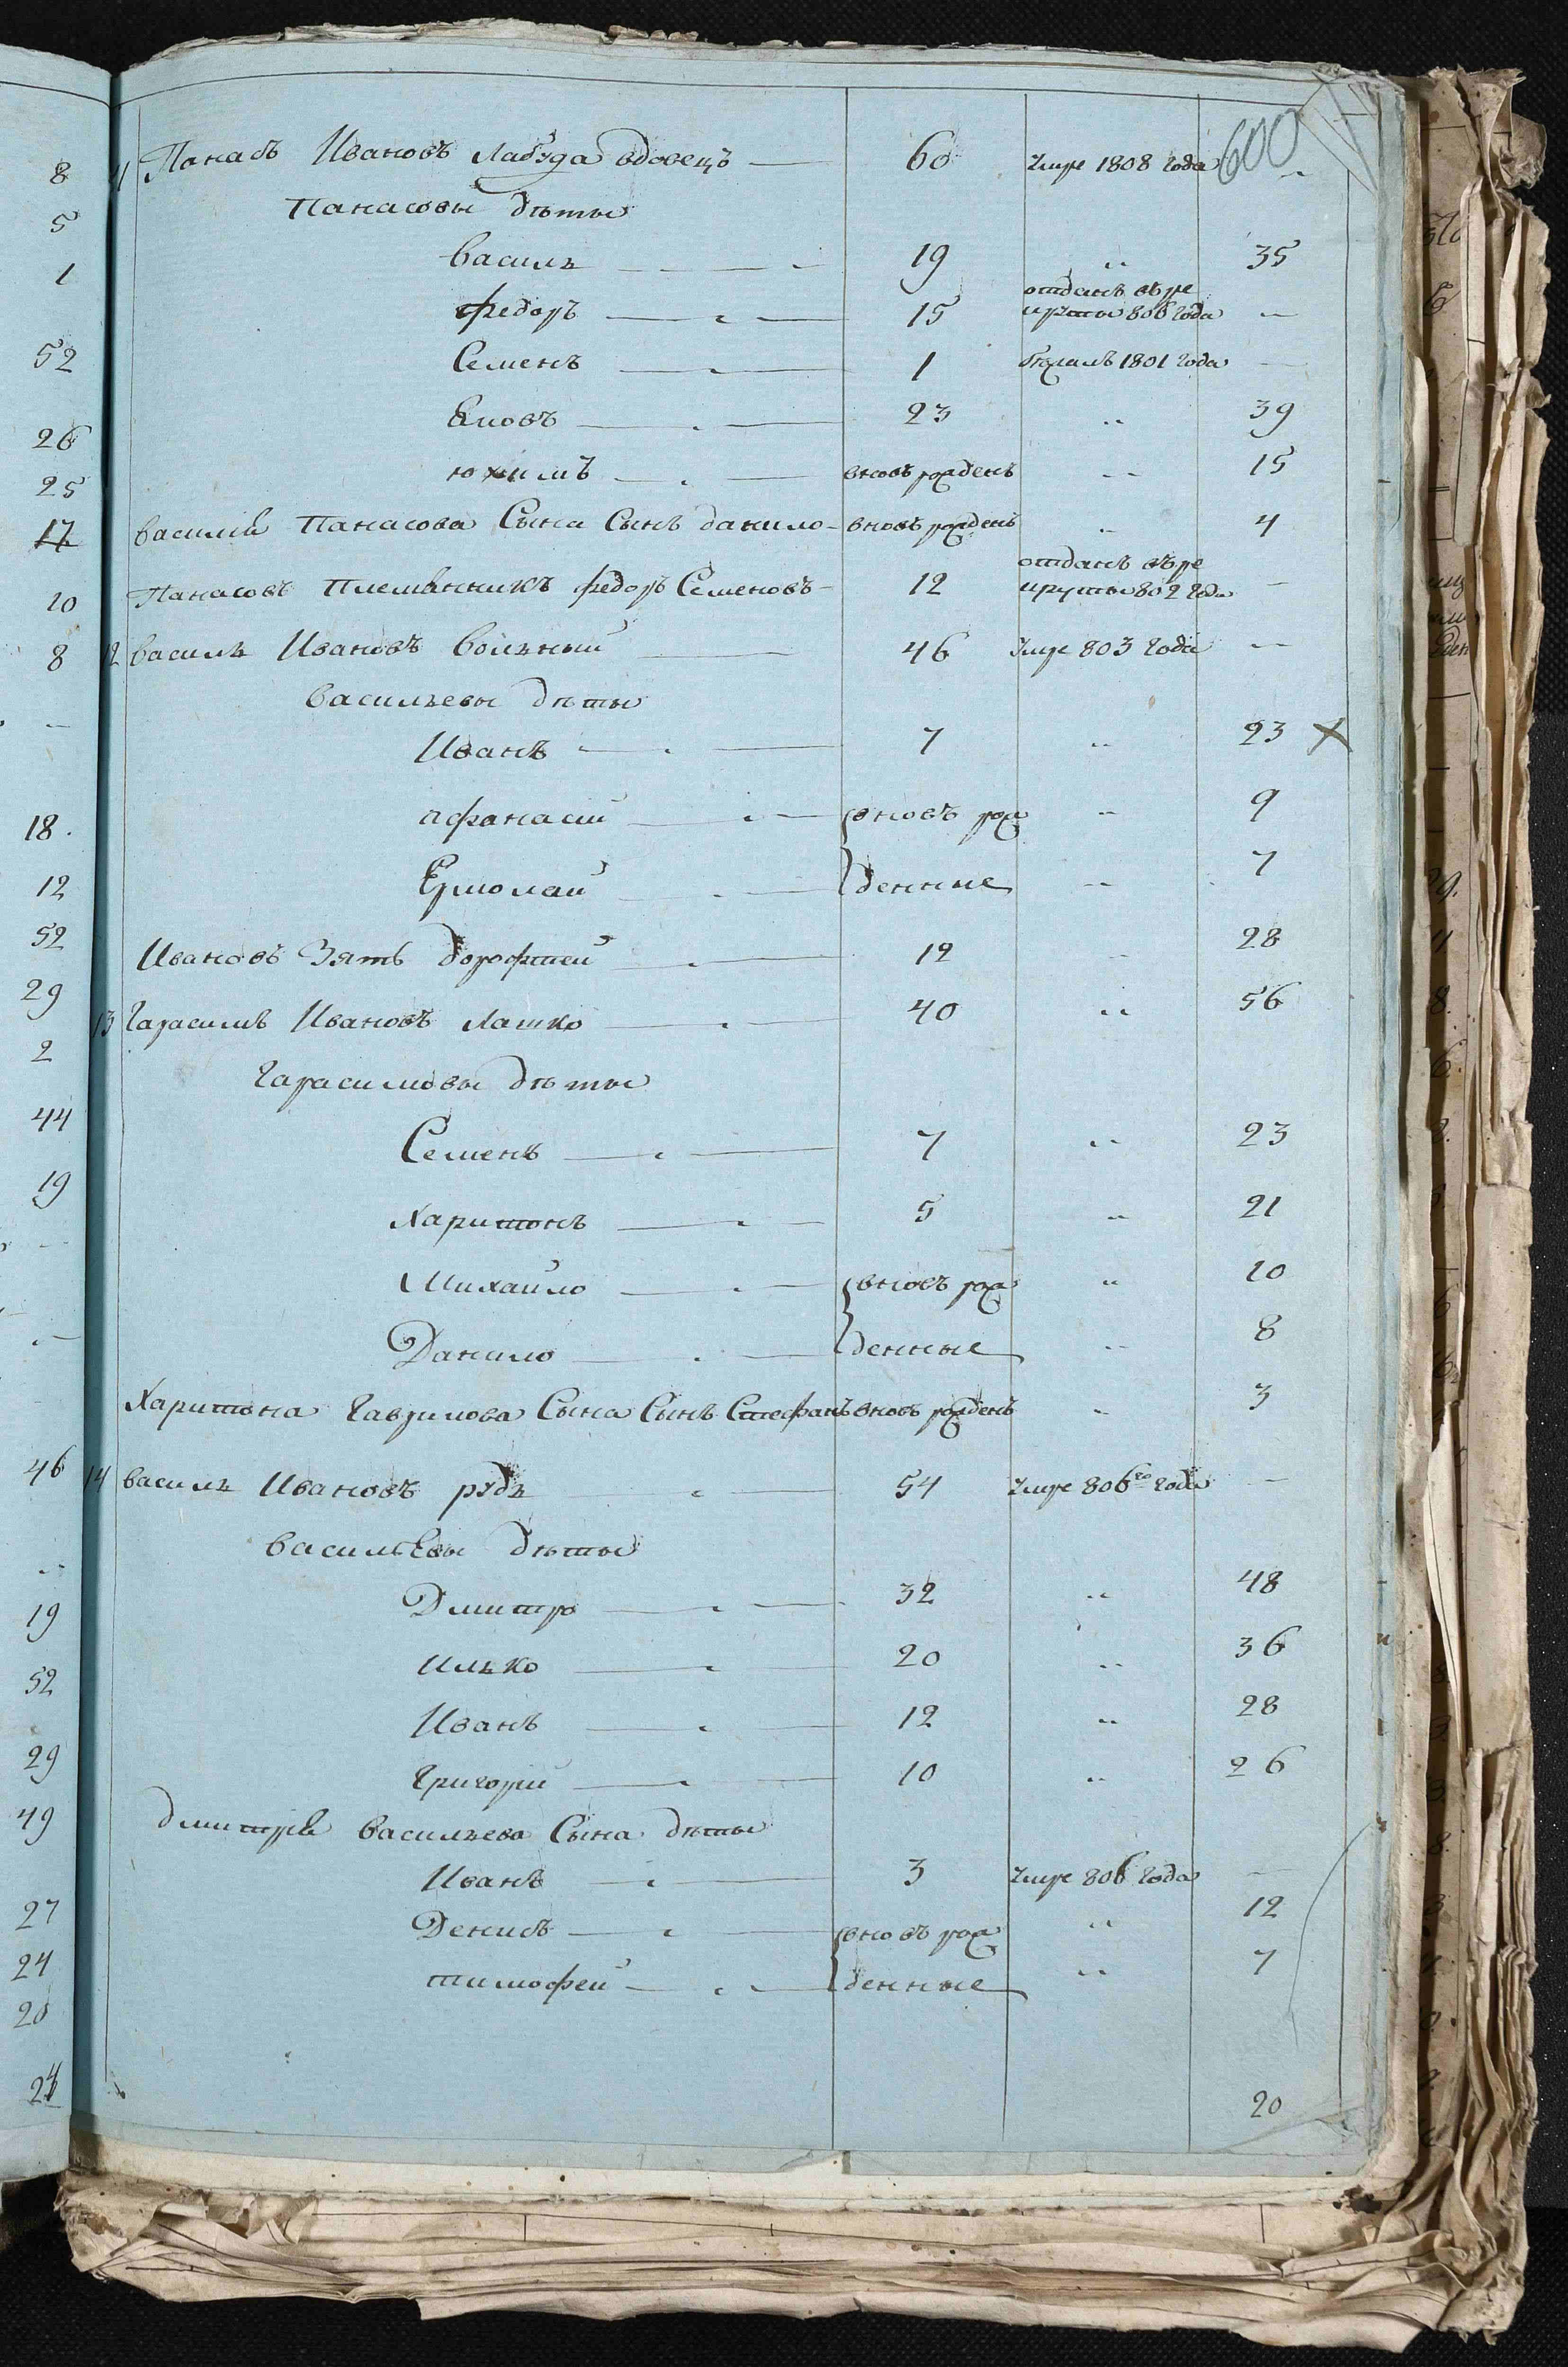 600
11 Панасъ Ивановъ Лабуда вдовецъ 60 умре 1808 года
Панасовы дѣты
Василь 19 35
федоръ 15 отданъ въ ре
круты 806 года
Семенъ 1 бѣжалъ 1801 года
Яковъ 23 39
юхимъ вновь рожденъ 15
василия Панасова Сына Сынъ данило вновь рожденъ 4
Панасовъ племянникъ федоръ Семеновъ 12 отданъ въ ре
круты 802 года
12 василь Ивановъ вольный 46 умре 803 года
Васильевы дѣты
Иванъ 7 23
афанасий вновь рож 9
Ермолай денные 7
Ивановъ Зять дорофтей 12 28
13 Гарасимъ Ивановъ Лашко 40 56
Гарасимовы дѣты
Семенъ 7 23
Харитонъ 5 21
Михайло вновь рож 10
Данило денные 8
Харитона Гаврилова Сына Сынъ Стефанъ вновь рожденъ 3
14 василь Ивановъ рудь 54 умре 806го года
васильевы дѣты
Дмитро 32 48
илько 20 36
Иванъ 12 28
Григорий 10 26
дмитрия васильева Сына дѣты
Иванъ 3 умре 806 года
Денисъ вновь рож 12
тимофей денные 7
20
8
5
1
52
26
25
17
10
8
18.
12
52
29
2
44
19
46
19
52
29
49
27
24
20
24